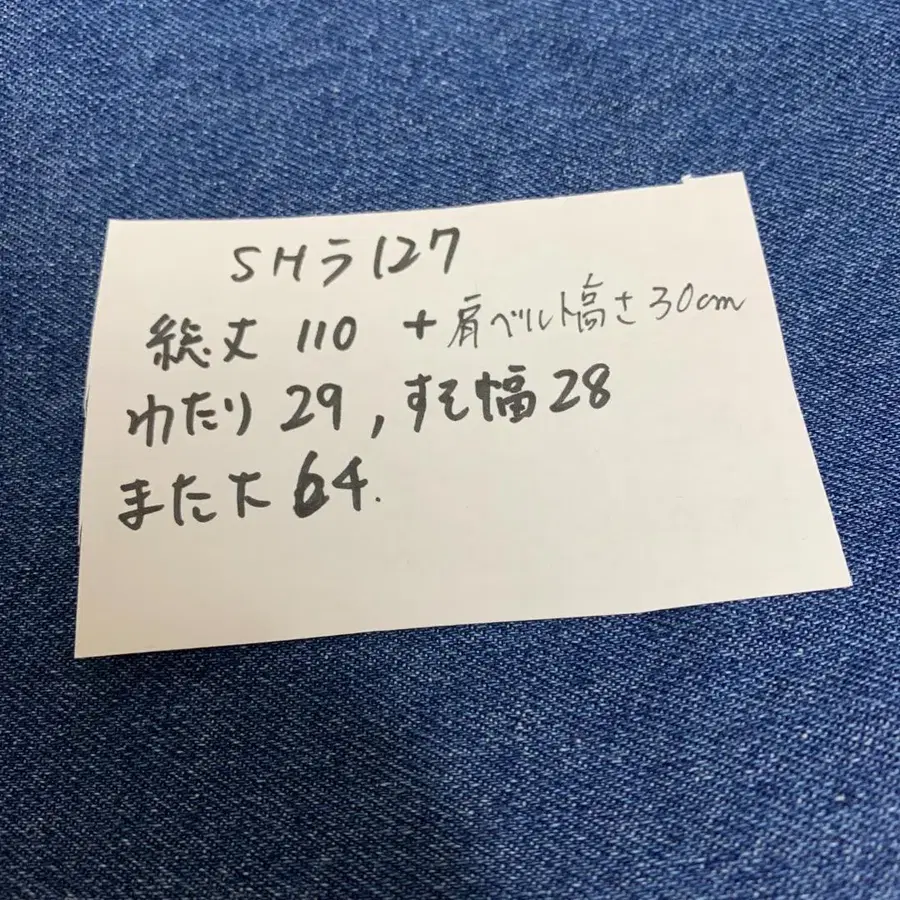 SHラ127
総丈 110 + 肩ベルト高さ30cm
わたり 29, すそ幅28
また丈 64.